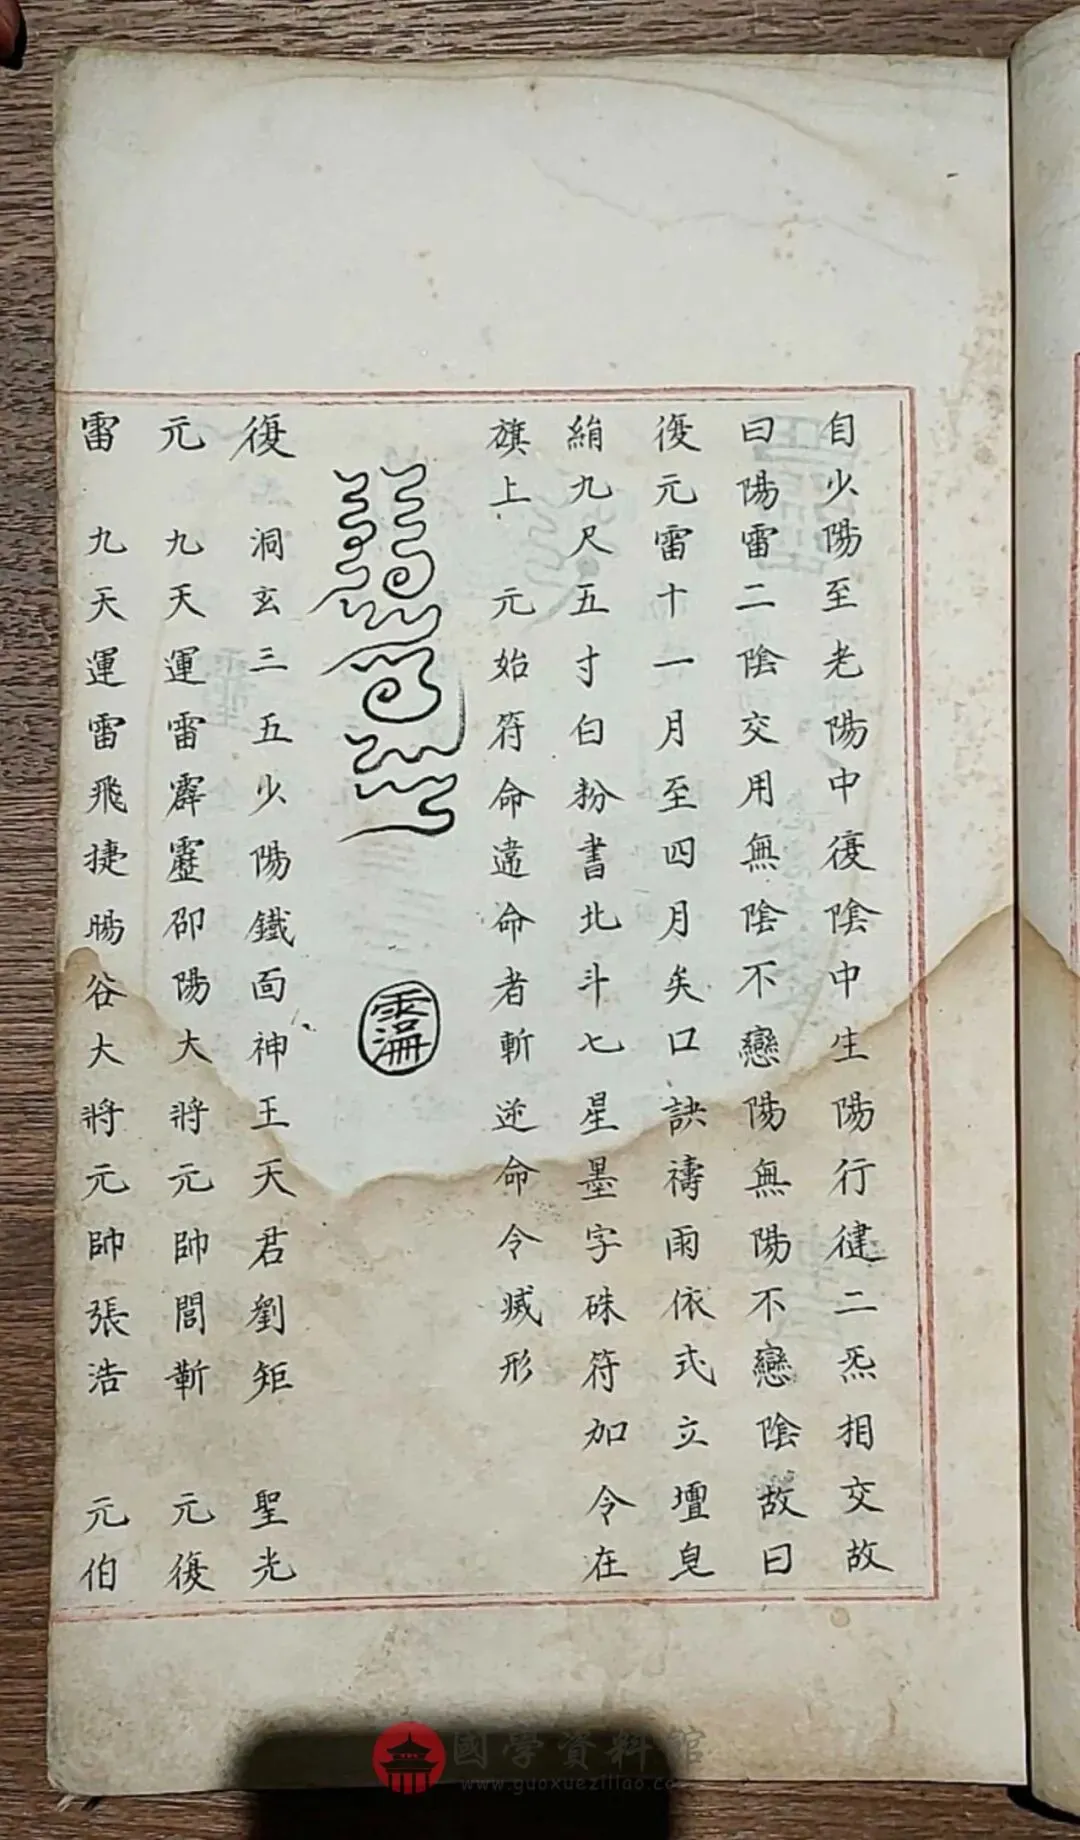 自少陽至老陽中復陰中生陽行健二炁相交故
曰陽雷二陰交用無陰不戀陽無陽不戀陰故曰
復元雷十一月至四月矣口訣禱雨依式立壇皂
絹九尺五寸白粉書北斗七星墨字硃符加令在
旗上 元始符命違命者斬逆命令滅形
復 洞玄三五少陽鐵面神王天君劉矩 聖光
元 九天運雷霹靂邵陽大將元帥閻斬 元復
雷 九天運雷飛捷暘谷大將元帥張浩 元伯
國學資料館
www.guoxueziliao.com